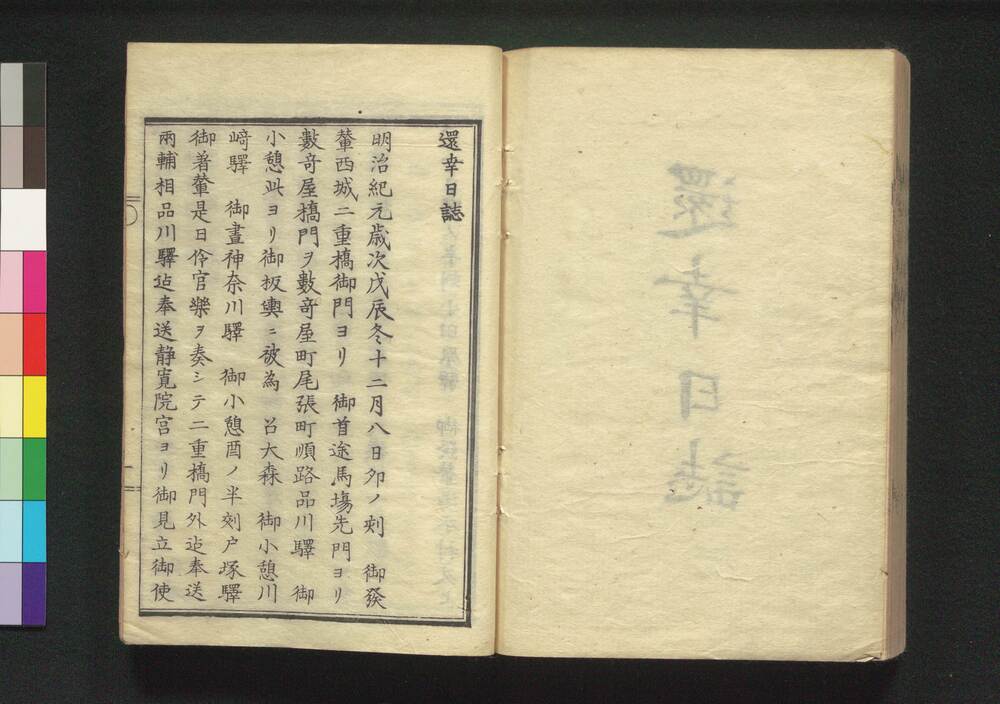 還幸日誌
還幸日誌
明治紀元歳次戊辰冬十二月八日夘ノ刻　御發
輦西城二重橋御門ヨリ　御首途馬塲先門ヨリ
數竒屋橋門ヲ數竒屋町尾張町順路品川驛　御
小憩此ヨリ御板輿ニ被為　召大森　御小憩川
﨑驛　御晝神奈川驛　御小憩酉ノ半刻戸塚驛
御着輦是日伶官樂ヲ奏シテ二重橋門外迠奉送
兩輔相品川驛迠奉送静寛院宮ヨリ御見立御使